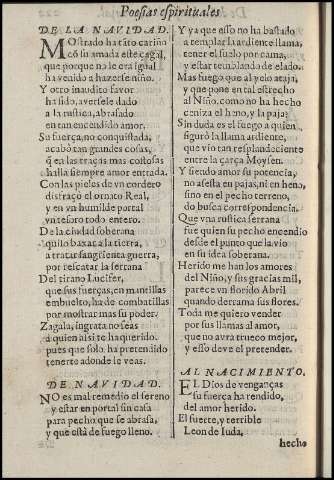 Poesias espirituales
DE LA NAVIDAD.
MOstrado ha tãto cariño
cõ su amada este çagal,
que porque no le era igual
ha venido a hazerse niño.
Y otro inaudito favor
ha sido, averse le dado
a la rustica, abrasado
en tan encendido amor.
Su fuerça, no conquistada,
acabò tan grandes cosas,
q̃ en las traças mas costosas
halla siempre amor entrada.
Con las pieles de vn cordero
distraçò el ornato Real,
y en vn humilde portal
vn tesoro todo entero.
De la ciudad soberana
quiso baxar a la tierra,
a tratar sangrienta guerra,
por rescatar la serrana
Del tirano Lucifer,
que sus fuerças, en mantillas
embuelto, ha de combatillas
por mostrar mas su poder.
Zagala, ingrata no seas
a quien assi te ha querido.
pues que solo ha pretendido
tenerte adonde le veas.
DE NAVIDAD.
NO es mal remedio el sereno
y estar en portal sin casa
para pecho que se abrasa,
y que està de fuego lleno.
Y ya que esso no ha bastado
a templar la ardiente llama,
tener el suelo por cama,
y estar temblando de elado.
Mas fuego que al yelo ataja,
y que pone en tal estrecho
al Niño, como no ha hecho
ceniza el heno, y la paja:
Sin duda es el fuego a quien
sigurò la llama ardiente,
que viò tan resplandeciente
entre la çarça Moysen.
Y siendo amor su potencia,
no assesta en pajas, ni en heno,
sino en el pecho terreno,
do busca correspondencia.
Que vna rustica serrana
fue quien su pecho encendio
desde el punto que la viò
en su idea soberana.
Herido me han los amores
del Niño, y sus gracias mil,
parece vn florido Abril
quando derrama sus flores.
Toda me quiero vender
por sus llamas al amor,
que no avra trueco mejor,
y esso deve el pretender.
AL NACIMIENTO.
EL Dios de venganças
su fuerça ha rendido,
del amor herido.
El fuerte, y terrible
Leon de Iuda,
hecho